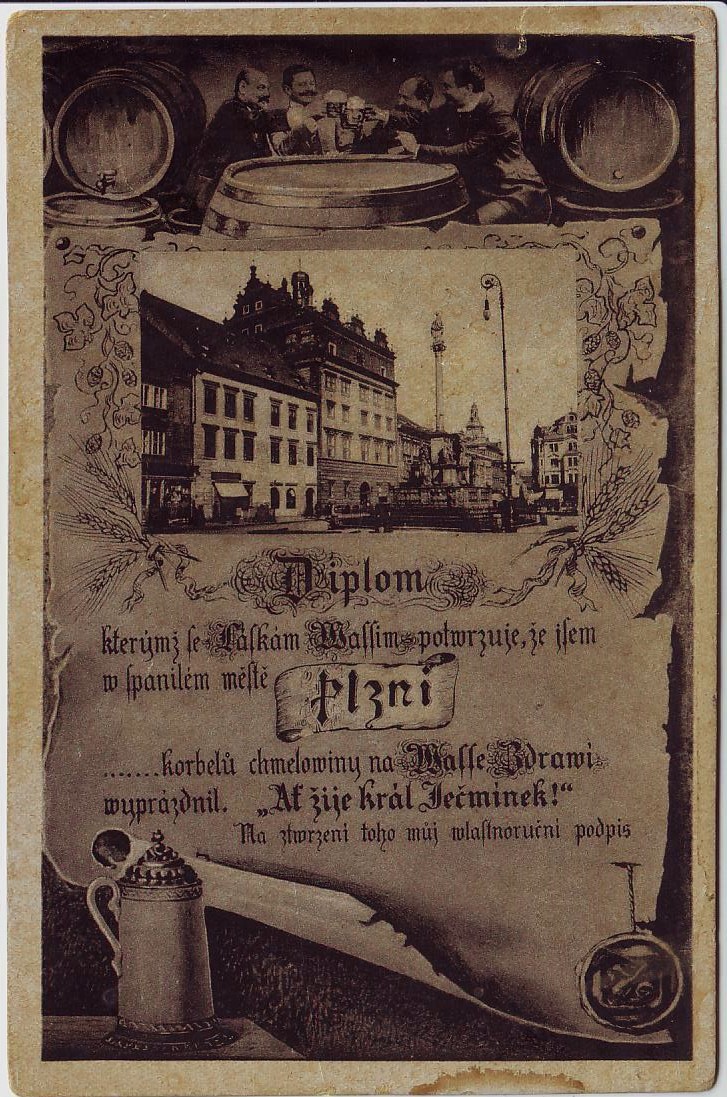 Diplom
kterýmž se Láskám Wassim potwrzuje, že jsem
w spanilém městě Plzni
.......korbelů chmelowiny na Wasse Zdrawi
wyprázdnil. „Ať žije král Ječmínek!"
Na ztwrzení toho můj wlastnoruční podpis